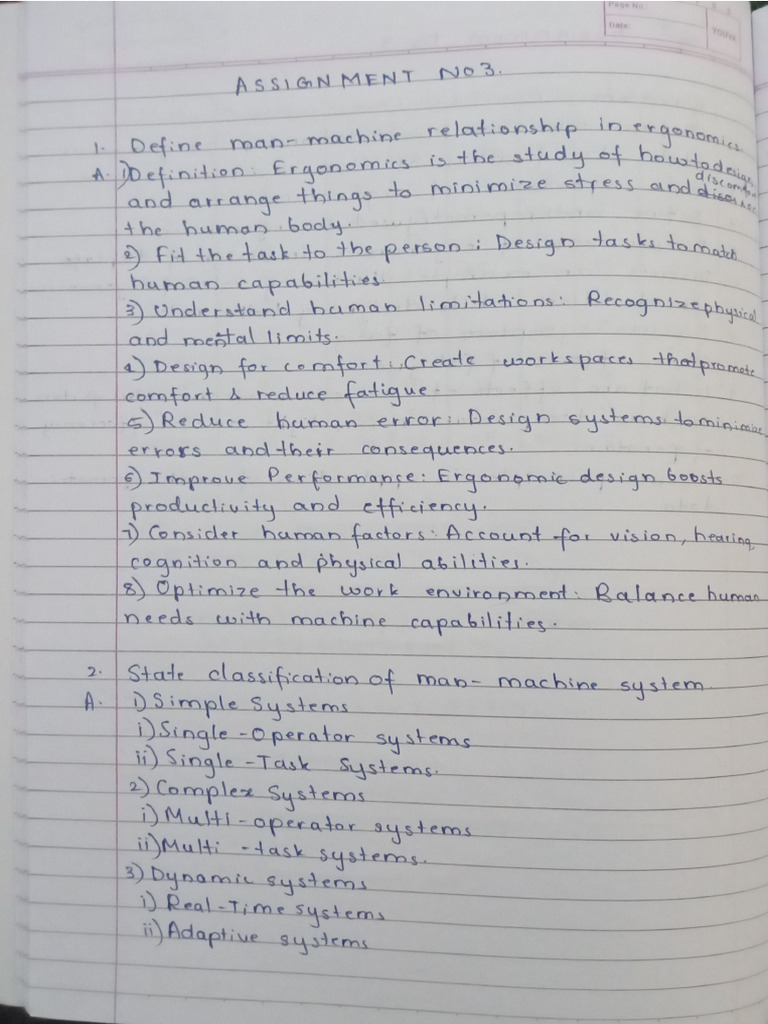 Page No.
Date:
YOUVA
ASSIGNMENT NO 3.
1. Define man-machine relationship in ergonomics.
A. 1) Definition: Ergonomics is the study of how to design
and arrange things to minimize stress and discomfort
the human body.
2) Fit the task to the person: Design tasks to match
human capabilities.
3) Understand human limitations: Recognize physical
and mental limits.
4) Design for comfort: Create workspaces that promote
comfort & reduce fatigue.
5) Reduce human error: Design systems to minimize
errors and their consequences.
6) Improve Performance: Ergonomic design boosts
productivity and efficiency.
7) Consider human factors: Account for vision, hearing,
cognition and physical abilities.
8) Optimize the work environment: Balance human
needs with machine capabilities.
2. State classification of man-machine system.
A. 1) Simple Systems
i) Single-Operator systems
ii) Single-Task Systems.
2) Complex Systems
i) Multi-operator systems
ii) Multi-task systems.
3) Dynamic systems
i) Real-Time systems
ii) Adaptive systems